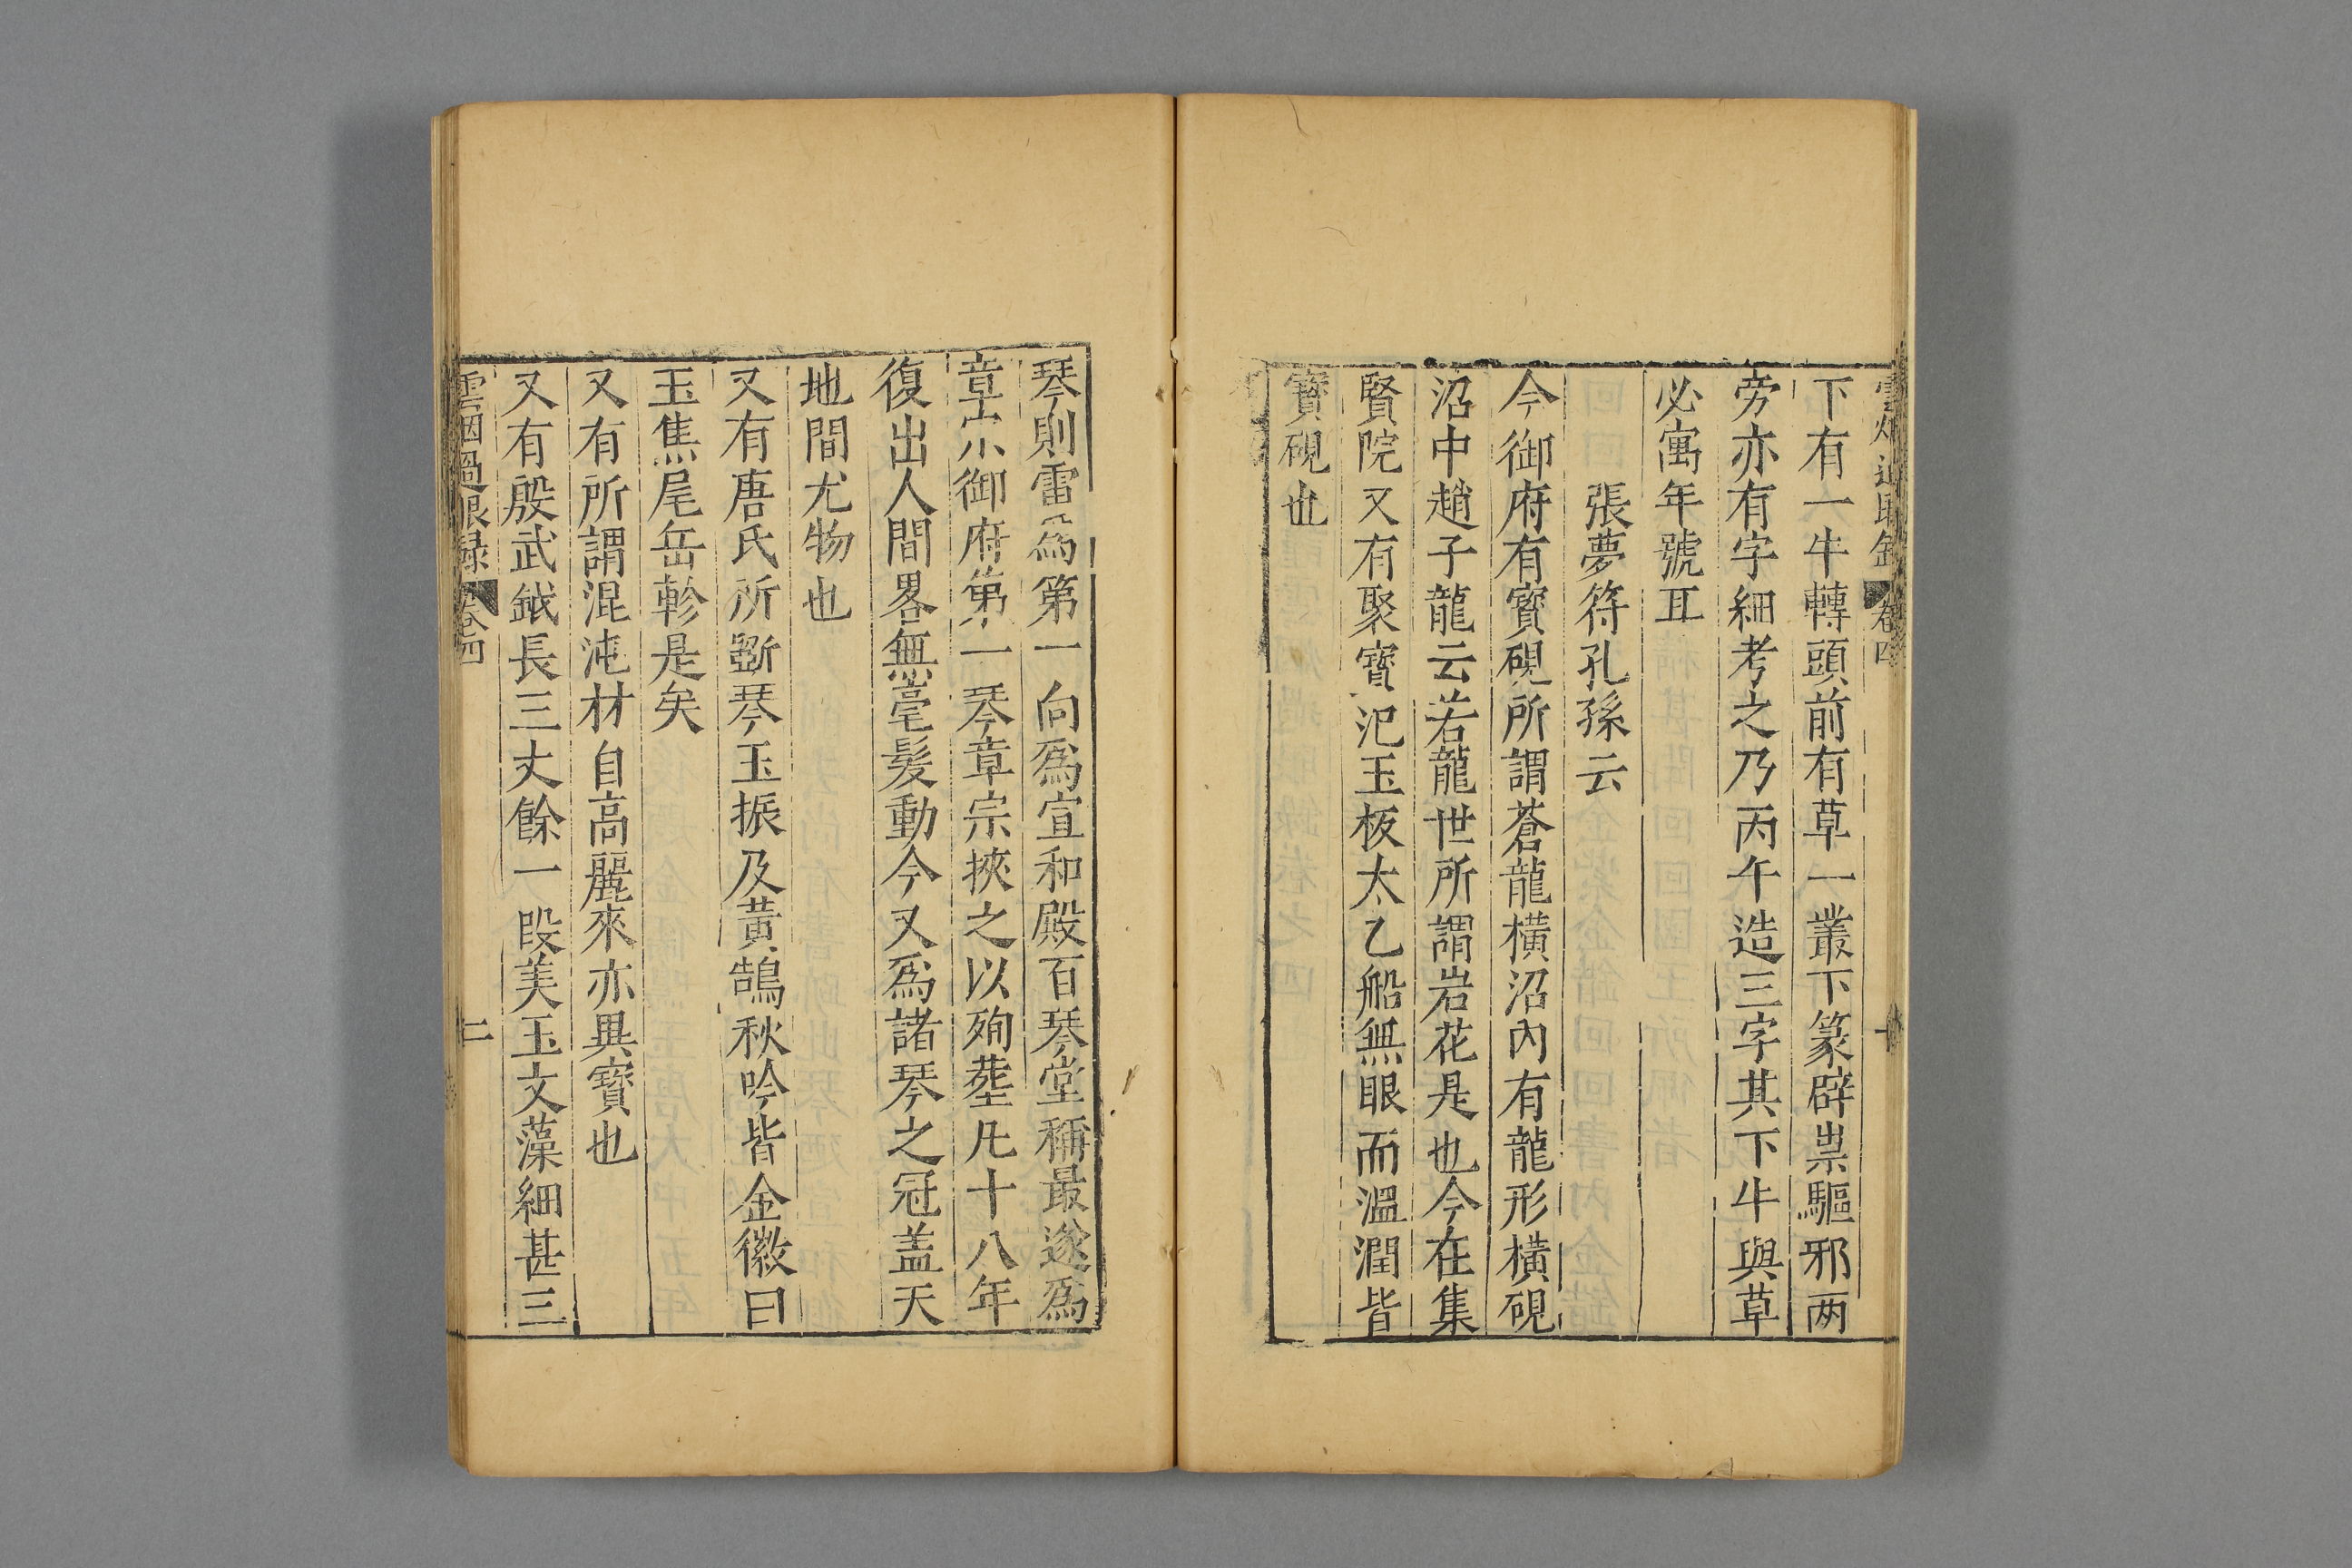 下有一牛轉頭前有草一叢下篆辟祟驅邪两
旁亦有字細考之乃丙午造三字其下牛與草
必寓年號耳
張夢符孔孫云
今御府有寳硯所謂蒼龍横沼內有龍形横硯
沼中趙子龍云若龍世所謂岩花是也今在集
賢院又有聚寳汜玉板太乙船無眼而溫潤皆
寳硯也
琴則雷爲第一向爲宣和殿百琴堂稱最遂爲
章宗御府第一琴章宗挾之以殉塟凡十八年
復出人間畧無毫髮動今又爲諸琴之冠盖天
地間尤物也
又有唐氏所斵琴玉振及黄鵠秋吟皆金徽曰
玉焦尾岳軫是矣
又有所謂混沌材自高麗來亦異寳也
又有殷武鉞長三丈餘一段美玉文藻細甚三
雲烟過眼録 卷四 二